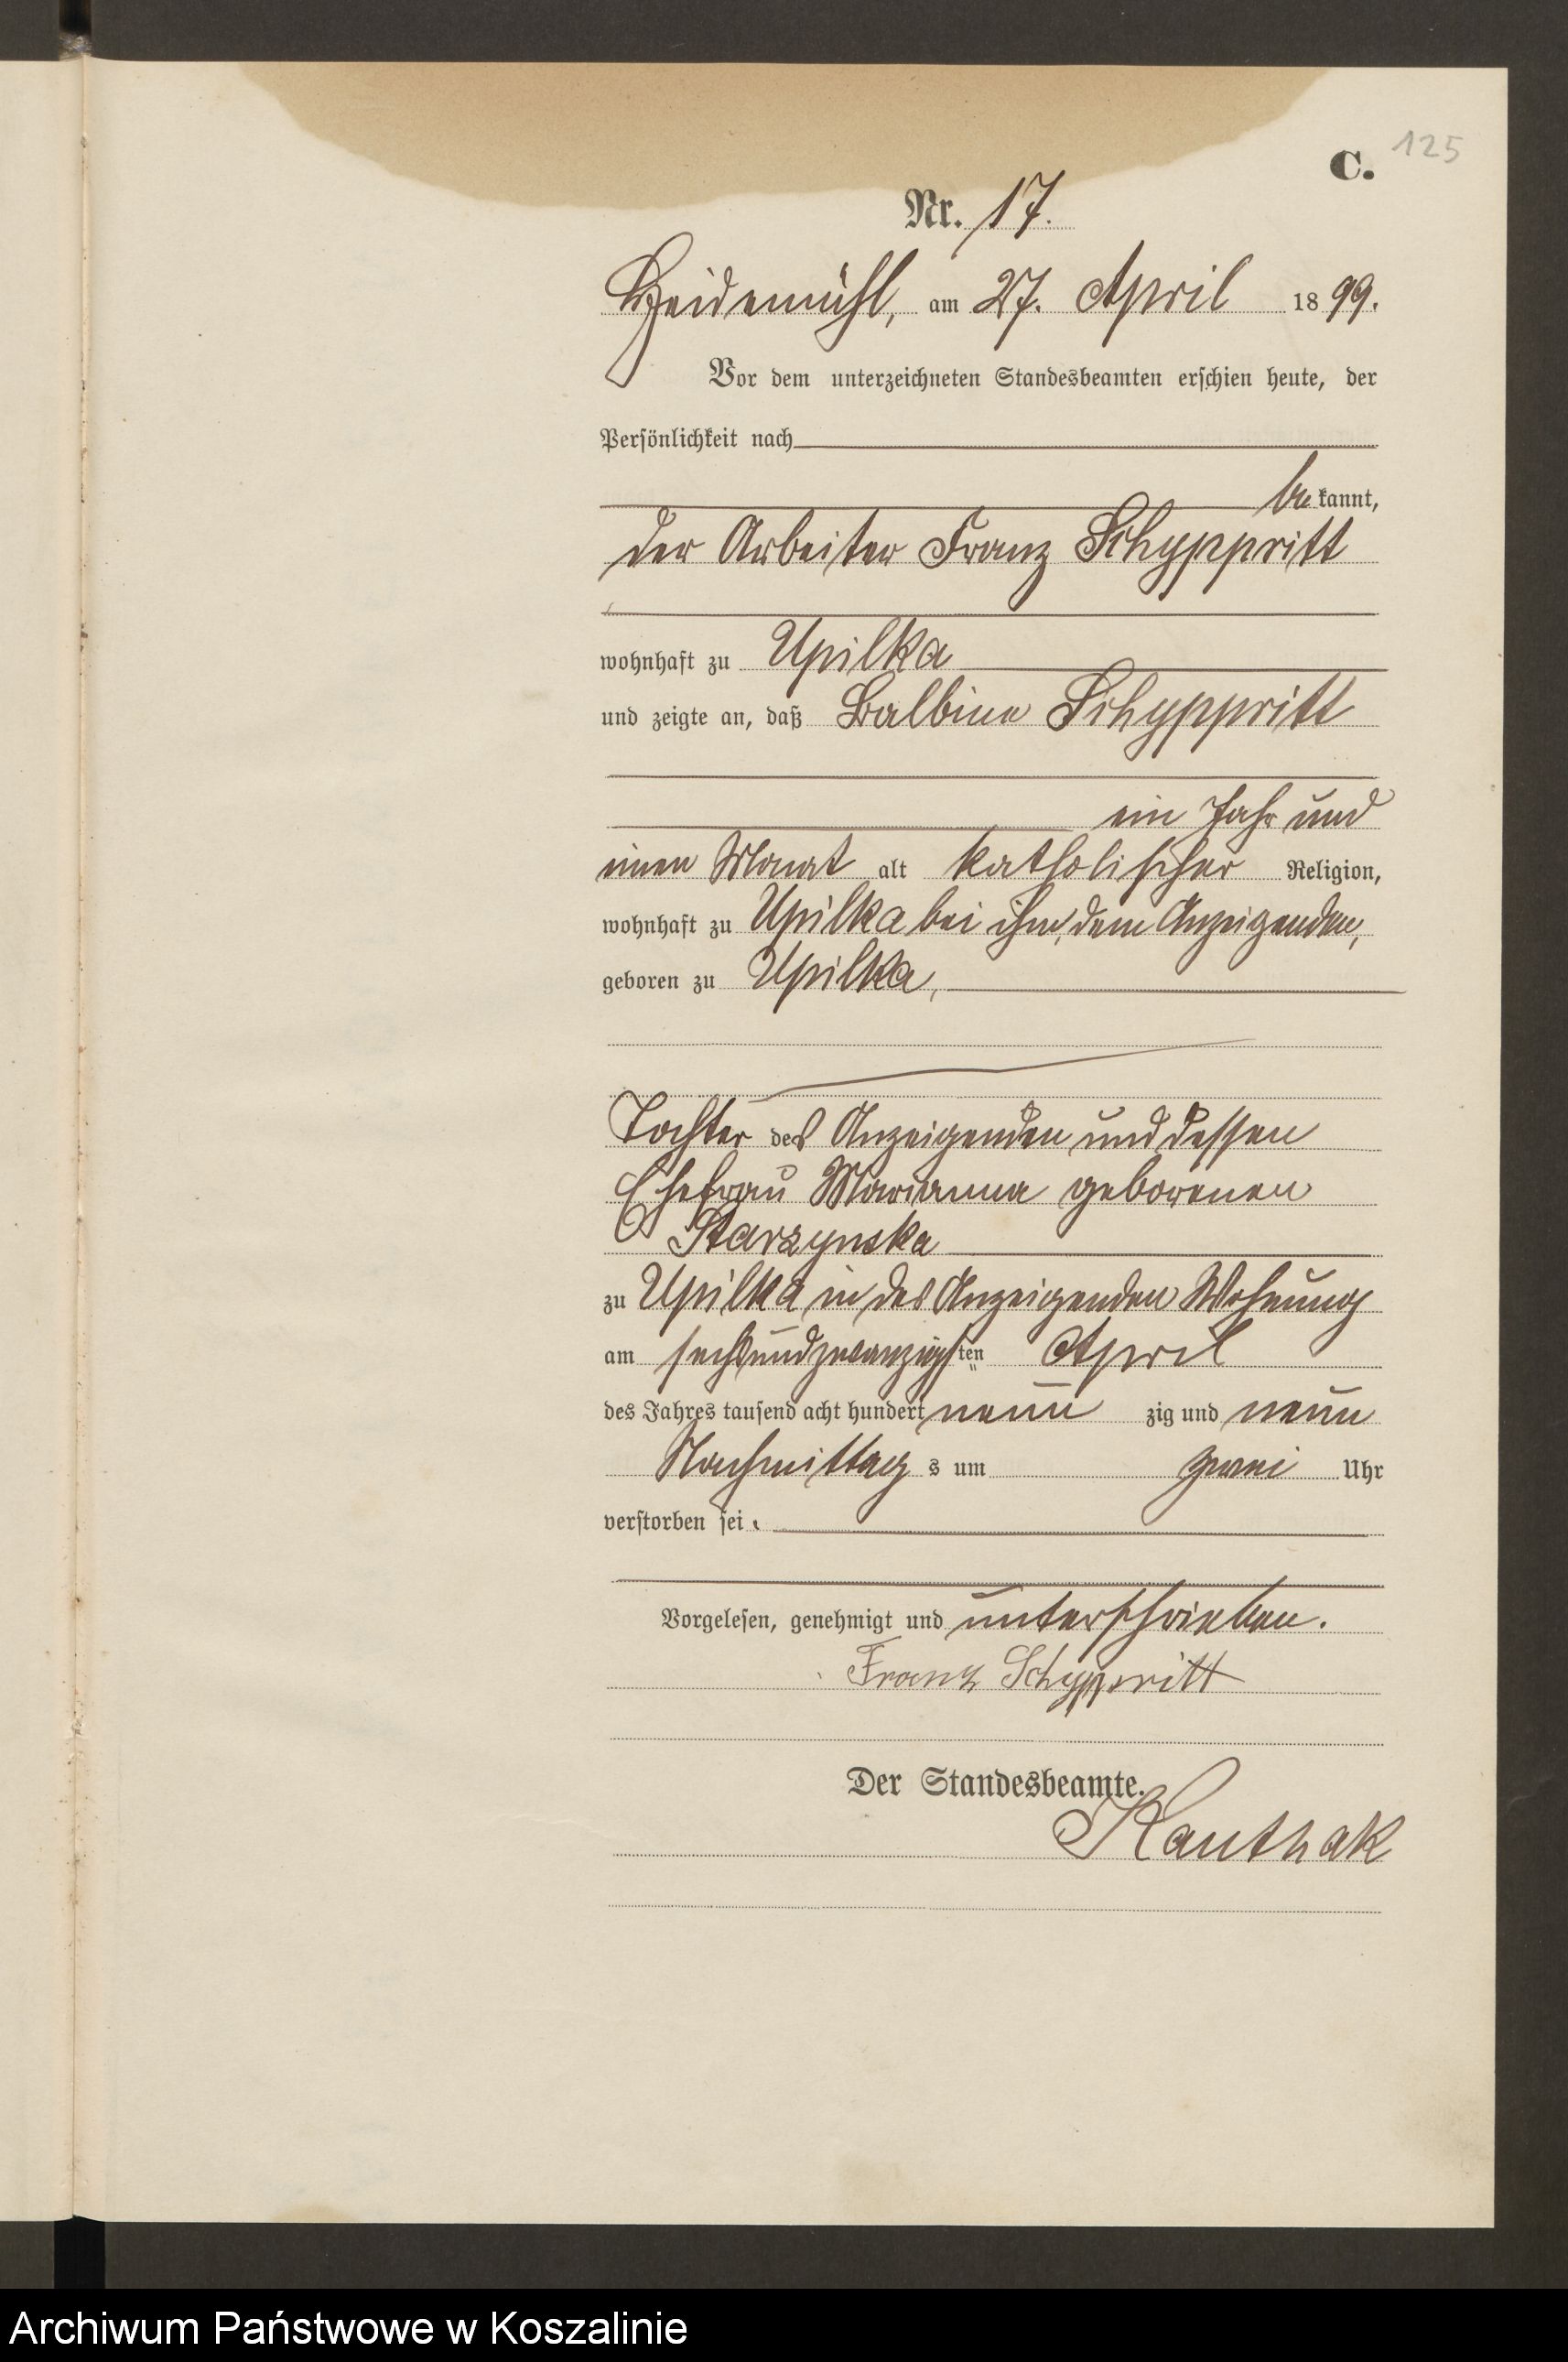 125
C.
Nr. 17.
Heidemühl, am 27. April 1899.
Vor dem unterzeichneten Standesbeamten erschien heute, der
Persönlichkeit nach
bekannt,
der Arbeiter Franz Schyppritt
wohnhaft zu Upilka
und zeigte an, daß Balbina Schyppritt
ein Jahr und
einen Monat alt katholischer Religion,
wohnhaft zu Upilka bei ihm, dem Anzeigenden,
geboren zu Upilka,
Tochter des Anzeigenden und dessen
Ehefrau Marianna geborenen
Starzynska
zu Upilka in des Anzeigenden Wohnung
am sechsundzwanzigsten April
des Jahres tausend acht hundert neunzig und neun
Nachmittags um zwei Uhr
verstorben sei.
Vorgelesen, genehmigt und unterschrieben.
Franz Schyppritt
Der Standesbeamte.
Kauthak
Archiwum Państwowe w Koszalinie